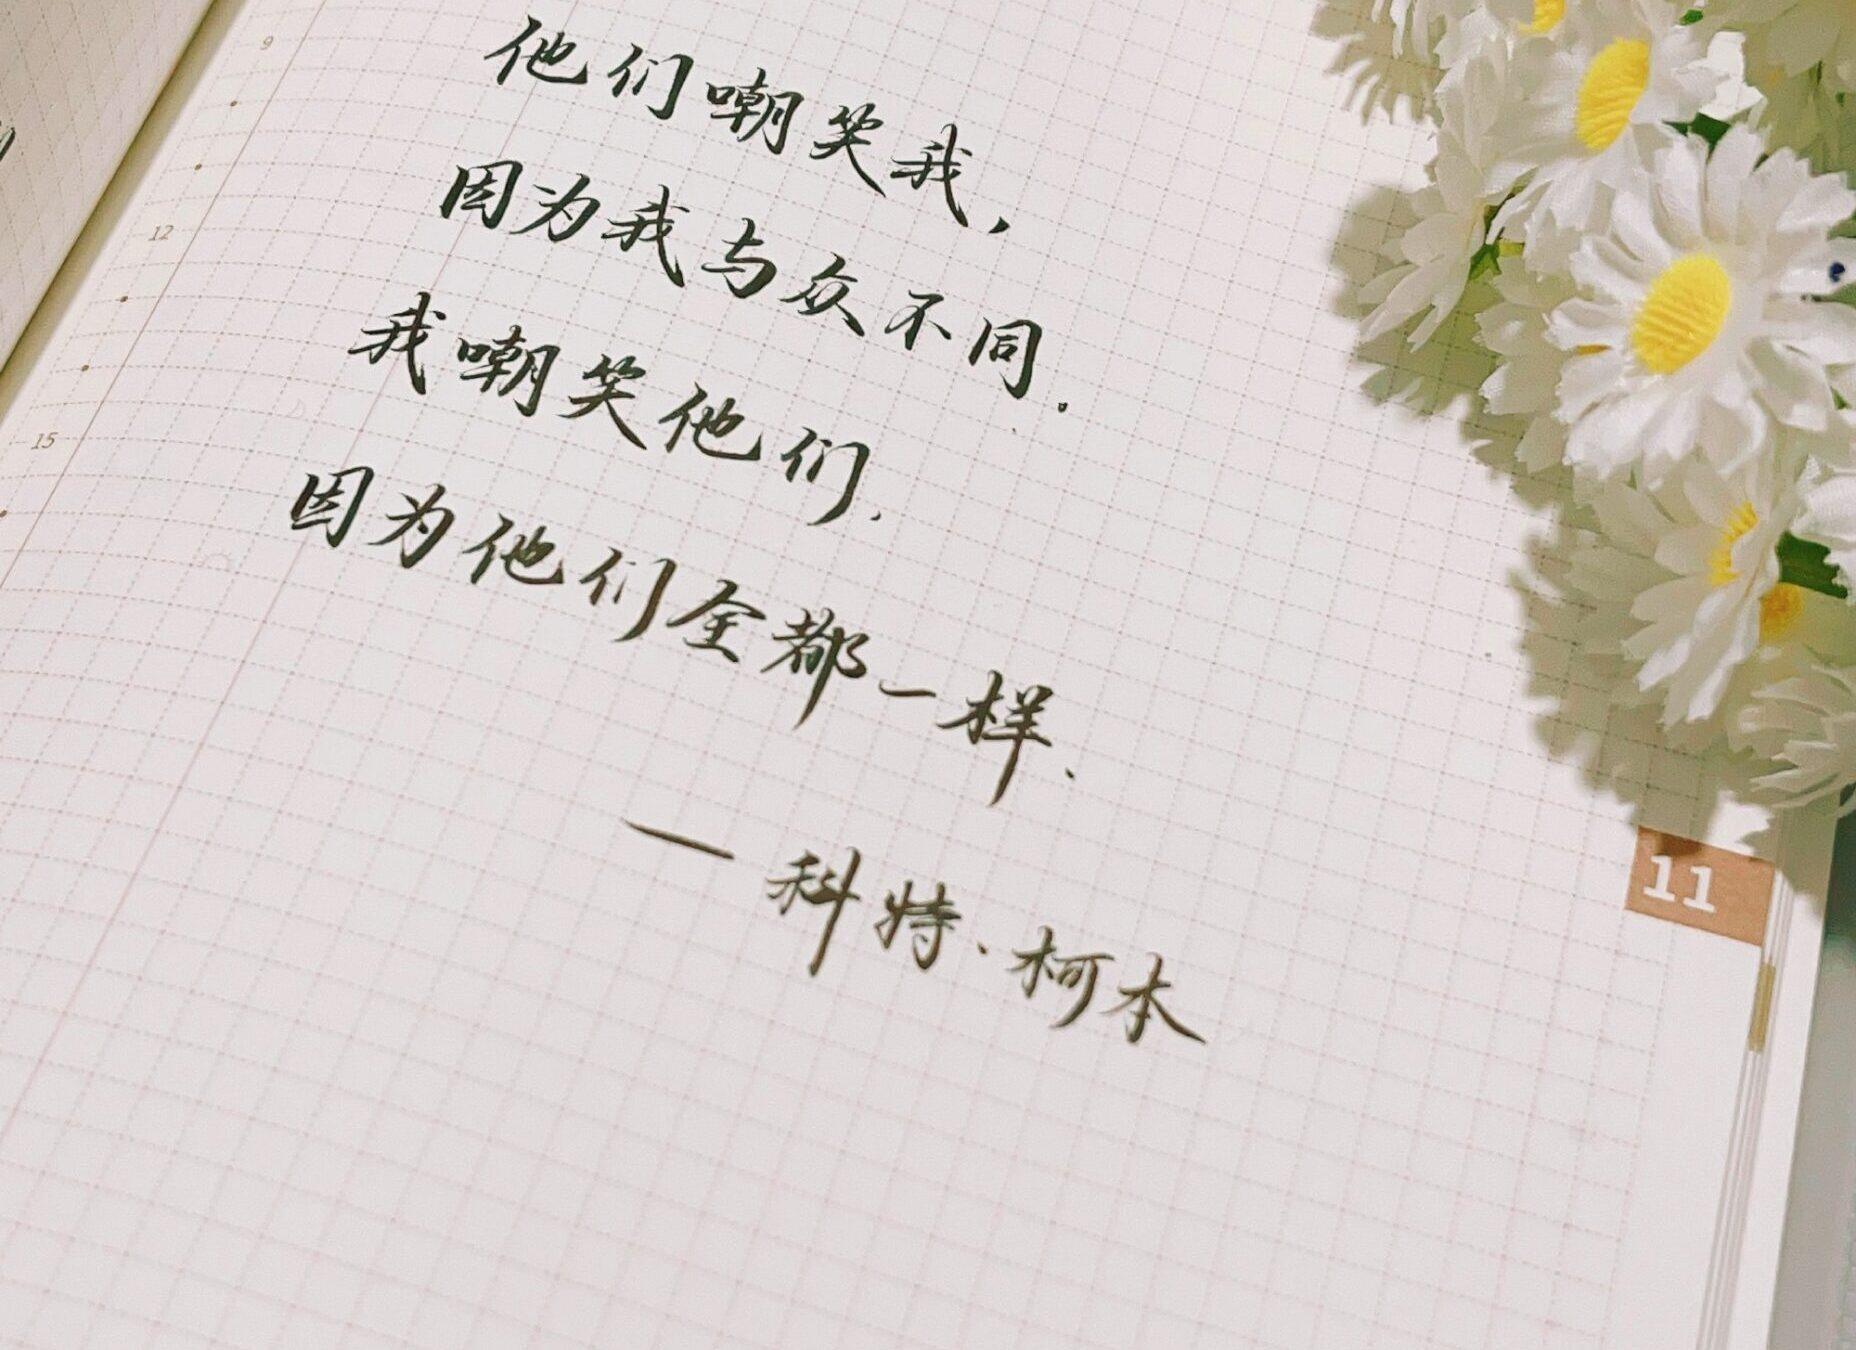 9
他们嘲笑我,
因为我与众不同.
12
我嘲笑他们.
因为他们全都一样.
15
—科特·柯本
11